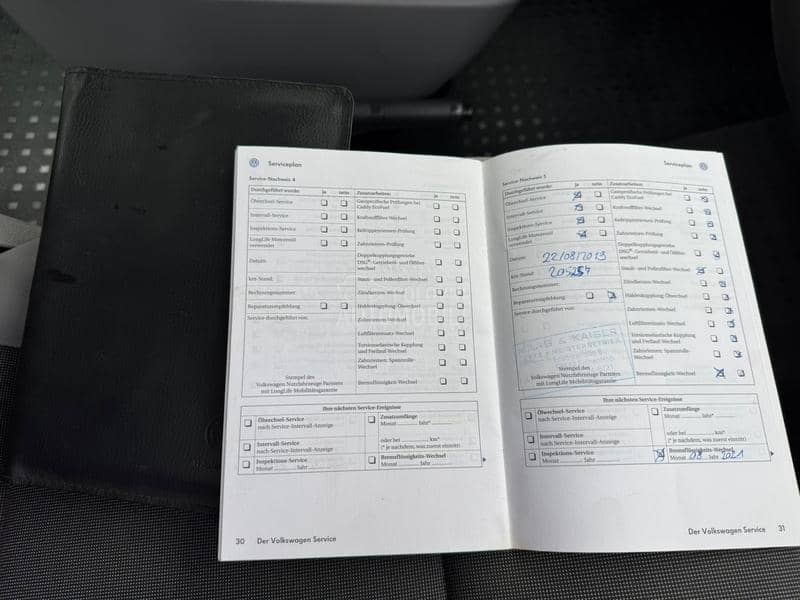 Serviceplan
Service-Nachweis 4
Durchgeführt wurde: ja nein Zusatzarbeiten: ja nein
Ölwechsel-Service Gasspezifische Prüfungen bei Caddy EcoFuel
Intervall-Service Kraftstofffilter-Wechsel
Inspektions-Service Keilrippenriemen-Prüfung
LongLife-Motorenöl verwendet Zahnriemen-Prüfung
Datum: Doppelkupplungsgetriebe DSG®-Getriebeöl- und Ölfilterwechsel
km-Stand: Staub- und Pollenfilter-Wechsel
Rechnungsnummer: Zündkerzen-Wechsel
Reparaturempfehlung Haldexkupplung-Ölwechsel
Service durchgeführt von: Zahnriemen-Wechsel
Luftfiltereinsatz-Wechsel
Torsionselastische Kupplung und Freilauf Wechsel
Zahnriemen: Spannrolle-Wechsel
Stempel des
Volkswagen Nutzfahrzeuge Partners Bremsflüssigkeit-Wechsel
mit LongLife Mobilitätsgarantie
Ihre nächsten Service-Ereignisse
Ölwechsel-Service
nach Service-Intervall-Anzeige
Zusatzumfänge
Monat Jahr*
Intervall-Service
nach Service-Intervall-Anzeige
oder bei km*
(* je nachdem, was zuerst eintritt)
Inspektions-Service
Monat Jahr
Bremsflüssigkeits-Wechsel
Monat Jahr
30 Der Volkswagen Service
Serviceplan
Service-Nachweis 5
Durchgeführt wurde: ja nein Zusatzarbeiten: ja nein
Ölwechsel-Service Gasspezifische Prüfungen bei Caddy EcoFuel
Intervall-Service Kraftstofffilter-Wechsel
Inspektions-Service Keilrippenriemen-Prüfung
LongLife-Motorenöl verwendet Zahnriemen-Prüfung
Datum: 22/08/2019 Doppelkupplungsgetriebe DSG®-Getriebeöl- und Ölfilterwechsel
km-Stand: Staub- und Pollenfilter-Wechsel
Rechnungsnummer: Zündkerzen-Wechsel
Reparaturempfehlung Haldexkupplung-Ölwechsel
Service durchgeführt von: Zahnriemen-Wechsel
Luftfiltereinsatz-Wechsel
& KAISER
Torsionselastische Kupplung und Freilauf Wechsel
Zahnriemen: Spannrolle-Wechsel
Stempel des
Volkswagen Nutzfahrzeuge Partners Bremsflüssigkeit-Wechsel
mit LongLife Mobilitätsgarantie
Ihre nächsten Service-Ereignisse
Ölwechsel-Service
nach Service-Intervall-Anzeige
Zusatzumfänge
Monat Jahr*
Intervall-Service
nach Service-Intervall-Anzeige
oder bei km*
(* je nachdem, was zuerst eintritt)
Inspektions-Service
Monat Jahr
Bremsflüssigkeits-Wechsel
Monat 08 Jahr 2021
Der Volkswagen Service 31